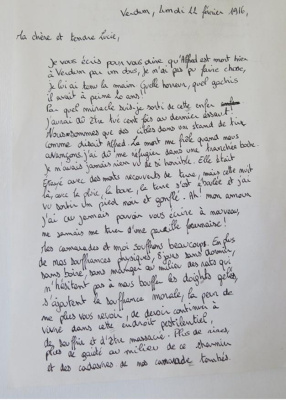 Verdun, lundi 22 février 1916,
Ma chère et tendre Lucie,
Je vous écris pour vous dire qu'Alfred est mort hier
à Verdun par un obus, je n'ai pas pu faire chose,
je lui ai tenu la main quelle horreur, quel gâchis
il avait à peine 20 ans!
Par quel miracle suis-je sorti de cette enfer
j'aurai dû être tué cent fois au dernier assaut!
Nous sommes que des cibles dans un stand de tir
comme disait Alfred. La mort me frôle quand nous
avançons, j'ai dû me réfugier dans une tranchée boche.
Je n'avais jamais rien vu de si horrible. Elle était
étayée avec des morts recouverts de terre, mais cette nuit
là, avec la pluie, la boue, la terre s'est éboulée et j'ai
vu sortir un pied noir et gonflé. Ah mon amour
j'ai cru jamais pouvoir vous écrire à nouveau,
ne jamais me tirer d'une pareille fournaise!
Mes camarades et moi souffrons beaucoup. En plus
de nos souffrances physiques, 6 jours sans dormir,
sans boire, sans manger au milieu des rats qui
n'hésitent pas à nous bouffer les doigts gelés,
s'ajoutent la souffrance morale, la peur de
ne plus vous revoir, de devoir continuer à
vivre dans cette endroit pestilentiel,
de souffrir et d'être massacré. Plus de rires,
plus de gaîté au milieu de ce charnier
et des cadavres de nos camarade tombés.